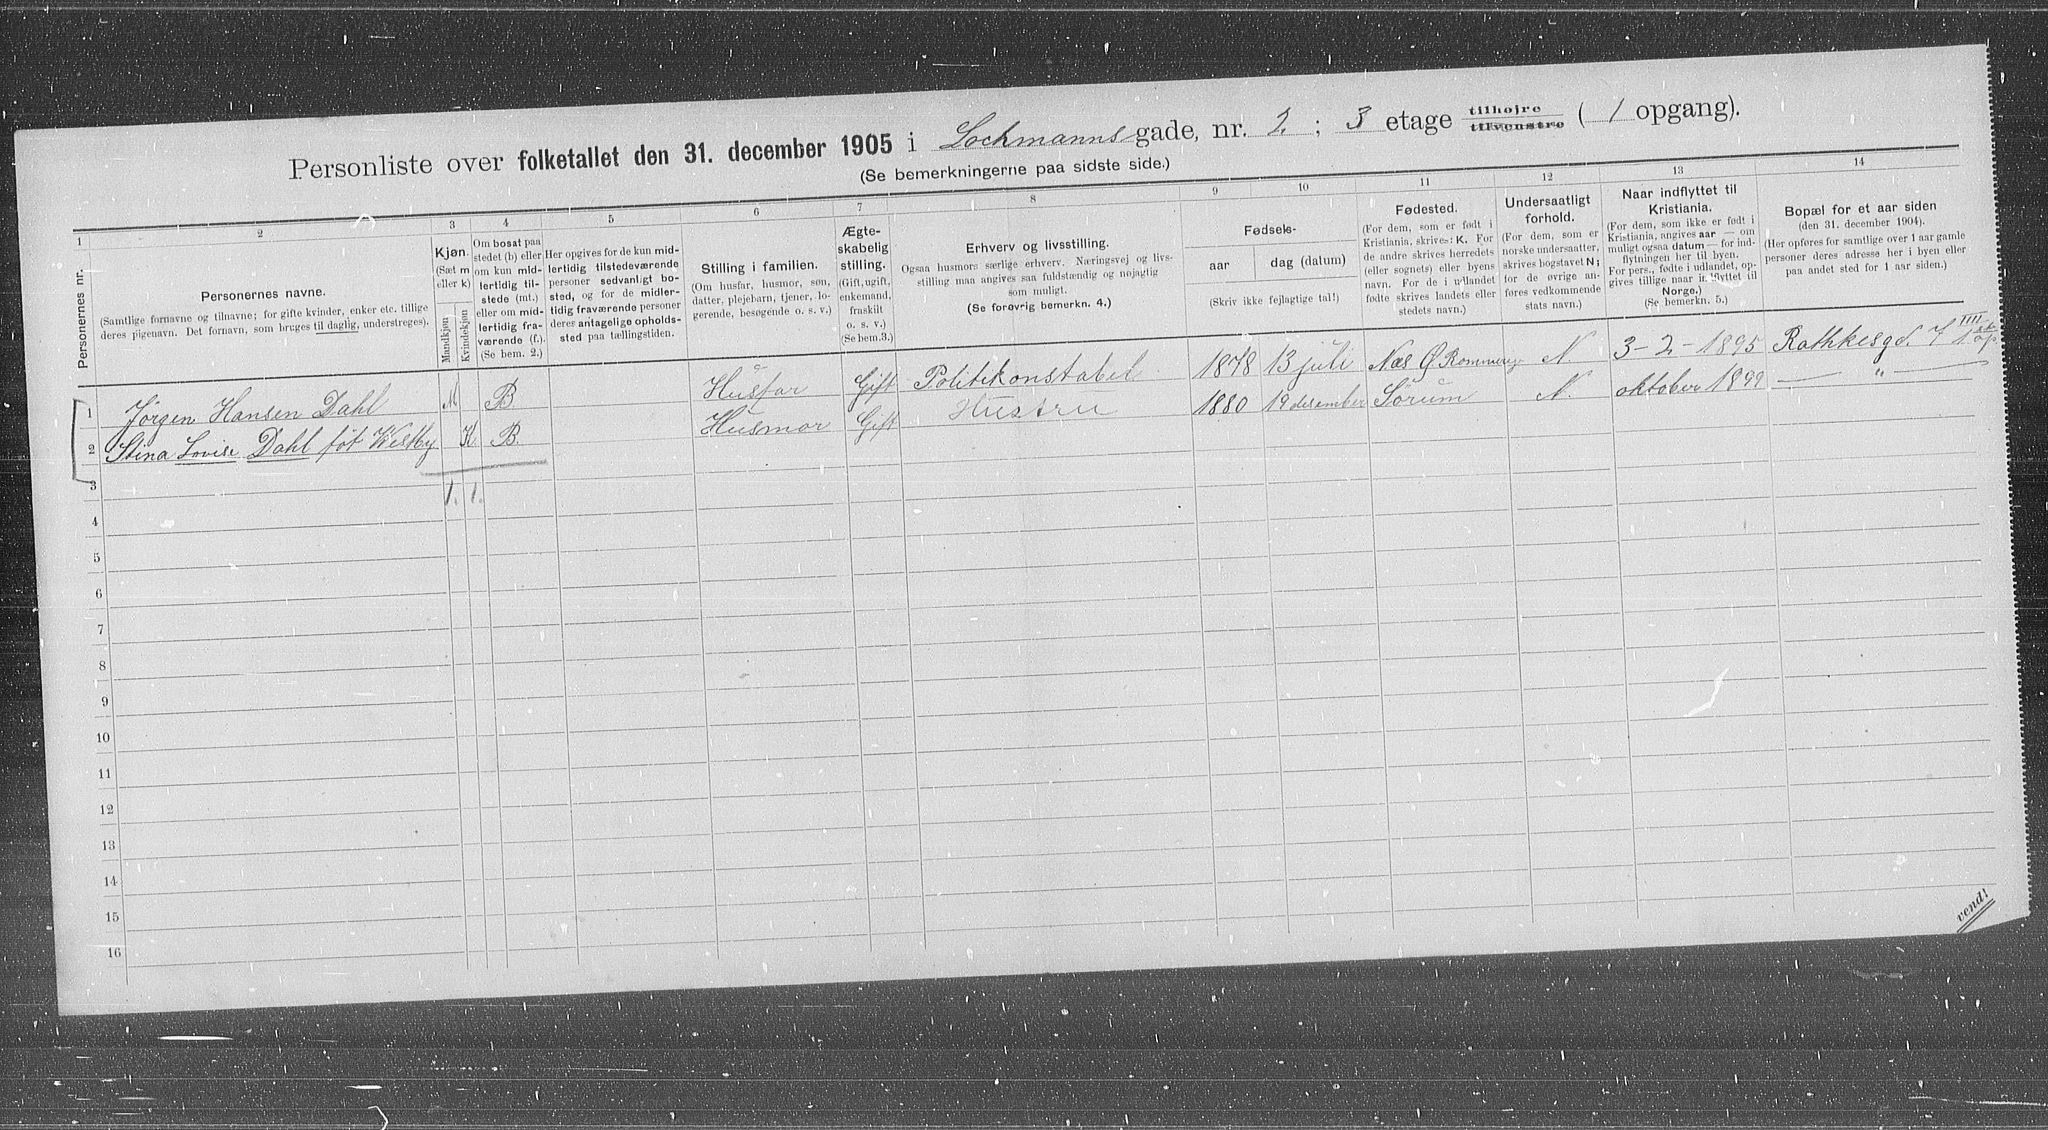 Personliste over folketallet den 31. december 1905 i Lochmanns gade, nr. 2 ; 3 etage tilhøjre tilvenstre ( 1 opgang).
(Se bemerkningerne paa sidste side.)
1 2 3 4 5 6 7 8 9 10 11 12 13 14
Personernes nr.
Personernes navne.
(Samtlige fornavne og tilnavne; for gifte kvinder, enker etc. tillige
deres pigenavn. Det fornavn, som bruges til daglig, understreges).
Kjøn.
(Sæt m
eller k)
Mandkjøn
Kvindekjøn
Om bosat paa
stedet (b) eller
om kun mid-
lertidig til-
stede (mt.)
eller om mid-
lertidig fra-
værende (f.).
(Se bem. 2.)
Her opgives for de kun mid-
lertidig tilstedeværende
personer sedvanlig bo-
sted, og for de midler-
tidig fraværende personer
deres antagelige opholds-
sted paa tællingstiden.
Stilling i familien.
(Om husfar, husmor, søn,
datter, plejebarn, tjener, lo-
gerende, besøgende o. s. v.)
Ægte-
skabelig
stilling.
(Gift, ugift,
enkemand,
fraskilt
o. s. v.)
(Se bem.3.)
Erhverv og livsstilling.
Ogsaa husmors særlige erhverv. Næringsvej og livs-
stilling maa angives saa fuldstændig og nøjagtig
som muligt.
(Se forøvrig bemerkn. 4.)
Fødsels-
aar
dag (datum)
(Skriv ikke fejlagtige tal!)
Fødested.
(For dem, som er født i
Kristiania, skrives: K. For
de andre skrives herredets
(eller sognets) eller byens
navn. For de i udlandet
fødte skrives landets eller
stedets navn.)
Undersaatligt
forhold.
(For dem, som er
norske undersaatter,
skrives bogstavet N;
for de øvrige an-
føres vedkommende
stats navn.)
Naar indflyttet til
Kristiania.
(For dem, som ikke er født i
Kristiania, angives aar — om
muligt ogsaa datum — for ind-
flytningen her til byen.
For pers., fødte i udlandet, op-
gives tillige naar indflyttet til
Norge.)
(Se bemerkn. 5.)
Bopæl for et aar siden
(den 31. december 1904).
(Her opføres for samtlige over 1 aar gamle
personer deres adresse her i byen eller
paa andet sted for 1 aar siden.)
1 Jørgen Hansen Dahl M B Husfar Gift Politikonstabel 1878 13 juli Næs Ø Romerrige N. 3-2-1895 Rathkesgd. 7 IIII 1 op
2 Stina Lovise Dahl føt Westby K B. Husmor Gift Hustru 1880 19 desember Sørum N. oktober 1899 — " —
3 1. 1.
4
5
6
7
8
9
10
11
12
13
14
15
16
vend!